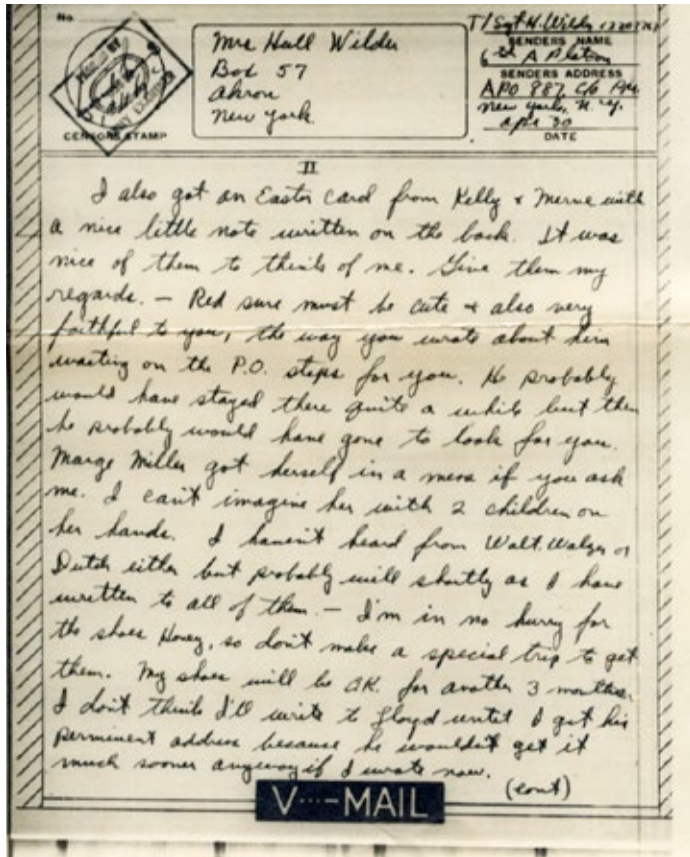 No.
PASSED BY
CENSOR'S STAMP
Mrs Hall Wilder
Box 57
Akron
New York
T/Sgt H. Wilder
SENDERS NAME
SENDERS ADDRESS
APO 887 c/o PM
New York, N.Y.
Apr 30
DATE
II
I also got an Easter card from Kelly & Merve with
a nice little note written on the back. It was
nice of them to think of me. Give them my
regards. — Red sure must be cute & also very
faithful to you, the way you wrote about him
waiting on the P.O. steps for you. He probably
would have stayed there quite a while but then
he probably would have gone to look for you.
Marge Miller got herself in a mess if you ask
me. I can't imagine her with 2 children on
her hands. I haven't heard from Walt. Walger or
Dutch either but probably will shortly as I have
written to all of them. — I'm in no hurry for
the shoes Honey, so don't make a special trip to get
them. My shoes will be OK. for another 3 months.
I don't think I'll write to Lloyd until I get his
perminent address because he wouldn't get it
much sooner anyway if I wrote now.
(cont)
V···—MAIL